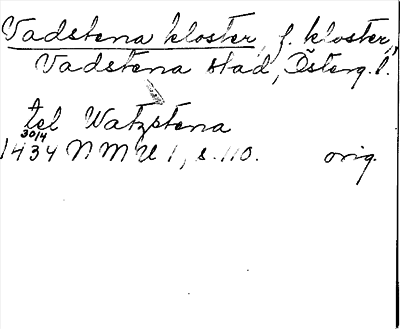 Vadstena kloster, f. kloster,
Vadstena stad, Österg. l.
tel Watzstena
30/4
1434 NMU 1, s. 110. orig.